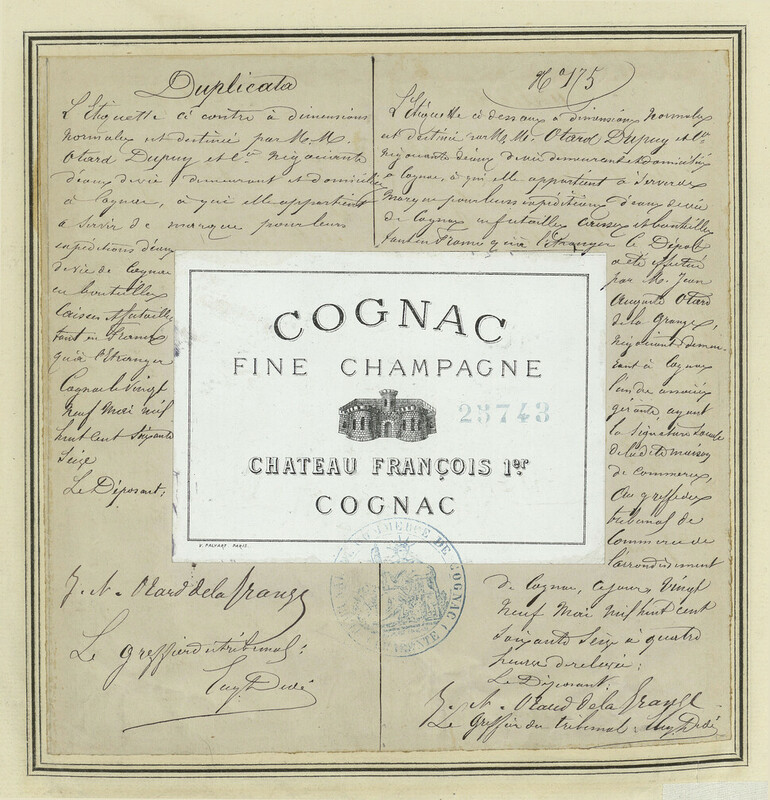 Duplicata
L'Etiquette ci contre à dimensions
normales est destinée par M.M.
Otard Dupuy et Cie négociants
d'eaux de vie demeurant et domiciliés
à Cognac, à qui elle appartient
à servir de marque pour leurs
expéditions d'eaux
de vie de Cognac
en bouteilles
caisses et futailles
tant en France
qu'à l'Etranger
Cognac le Vingt
neuf Mai mil
huit cent soixante
seize
Le Déposant:
J. A. Otard de la Grange
Le greffier du tribunal:
No 175
L'Etiquette ci dessous à dimensions normales
est destinée par M. M. Otard Dupuy et Cie
négociants d'eaux de vie demeurant et domiciliés
à Cognac, à qui elle appartient à servir de
marque pour leurs expéditions d'eaux de vie
de Cognac en futailles caisses et bouteilles
tant en France qu'à l'Etranger le Dépôt
a été effectué
par M. Jean
Auguste Otard
de la Grange,
négociant demeu-
rant à Cognac
l'un des associés
gérants ayant
la signature sociale
de la dite maison
de commerce,
Au greffe du
tribunal de
Commerce de
l'arrondissement
de Cognac, ce jour Vingt
neuf Mai mil huit cent
soixante seize à quatre
heures de relevée:
Le Déposant:
J. A. Otard de la Grange
Le Greffier du tribunal
COGNAC
FINE CHAMPAGNE
23743
CHATEAU FRANÇOIS 1er
COGNAC
V. PALYART PARIS.
COMMERCE DE COGNAC